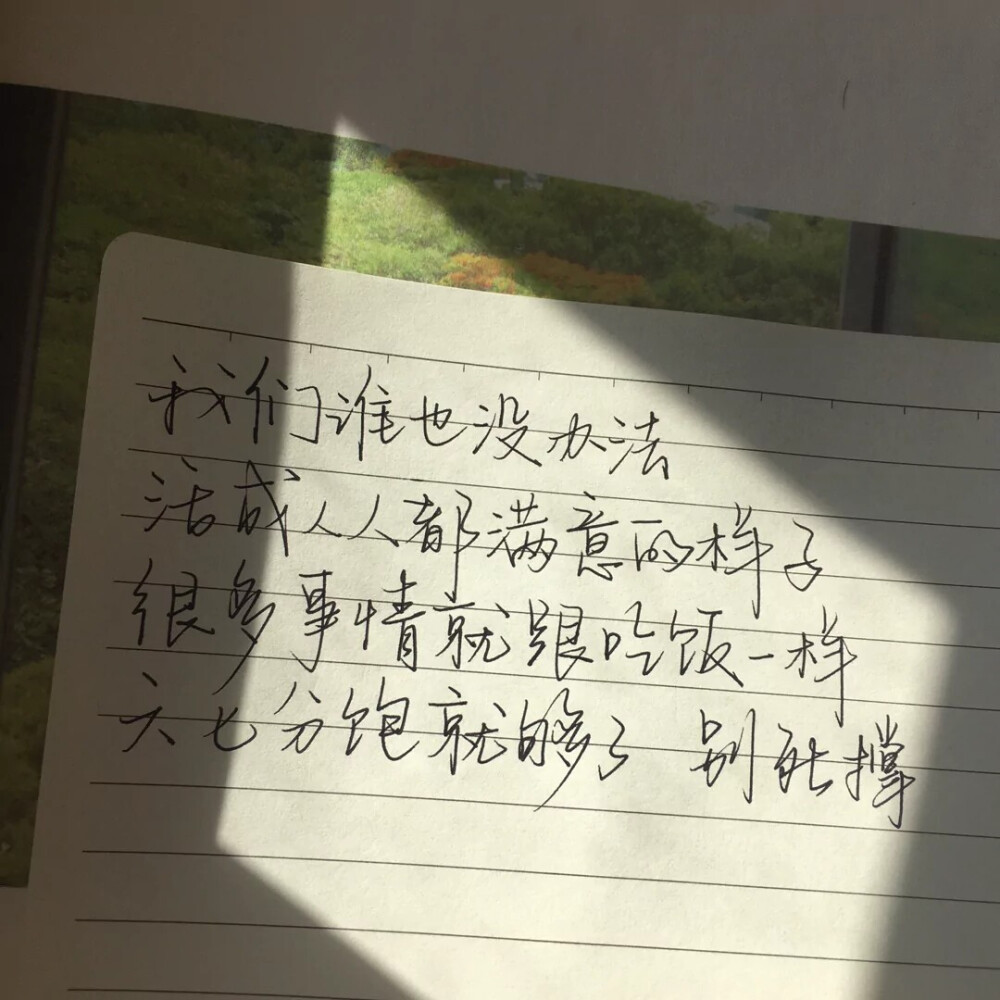 我们谁也没办法
活成人人都满意的样子
很多事情就跟吃饭一样
六七分饱就够了 别死撑